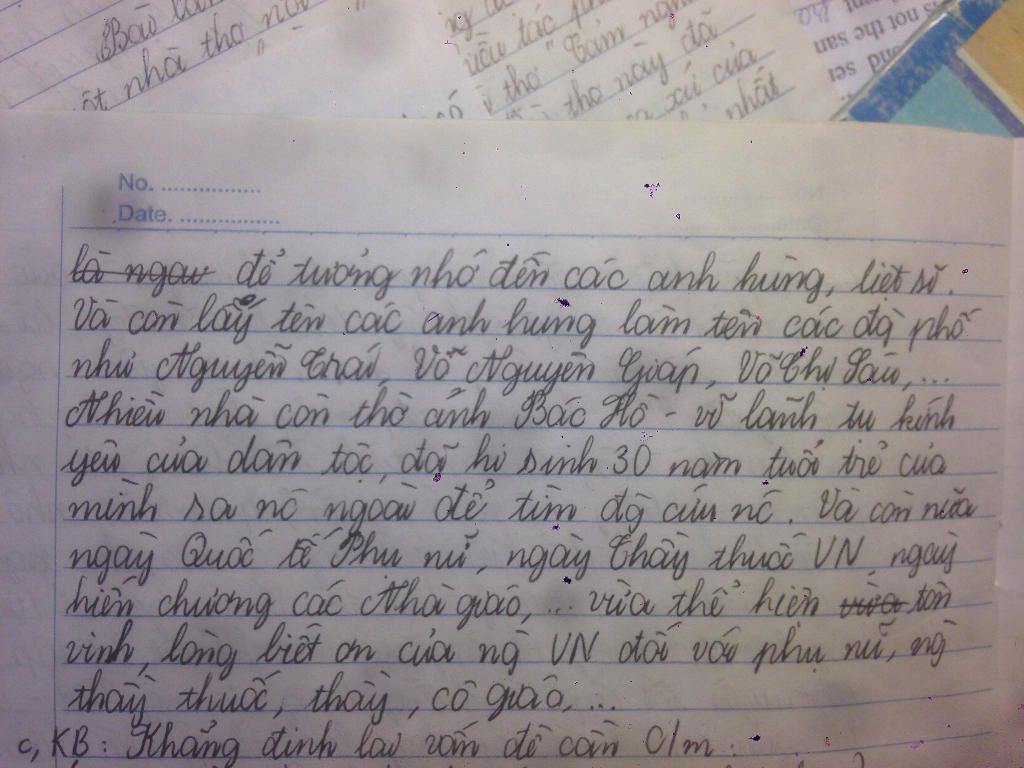 Bao
nhà thơ nổi
ột nhà thơ
tác
thơ "Cảm
thơ này đã
xú của
nhất
is not the san
and
No. ...............
Date. ...............
là ngay để tưởng nhớ đến các anh hùng, liệt sĩ.
Và còn lấy tên các anh hùng làm tên các đg phố
như Nguyễn Trãi, Võ Nguyên Giáp, Võ Thị Sáu,...
Nhiều nhà còn thờ ảnh Bác Hồ - vĩ lãnh tụ kính
yêu của dân tộc, đã hi sinh 30 năm tuổi trẻ của
mình sa nc ngoài để tìm đg cứu nc. Và còn nữa
ngày Quốc tế Phụ nữ, ngày Thầy thuốc VN, ngày
hiến chương các Nhà giáo,... vừa thể hiện vừa tôn
vinh, lòng biết ơn của ng VN đối với phụ nữ, ng
thầy thuốc, thầy, cô giáo,...
c, KB: Khẳng định lại vấn đề cần C/m.